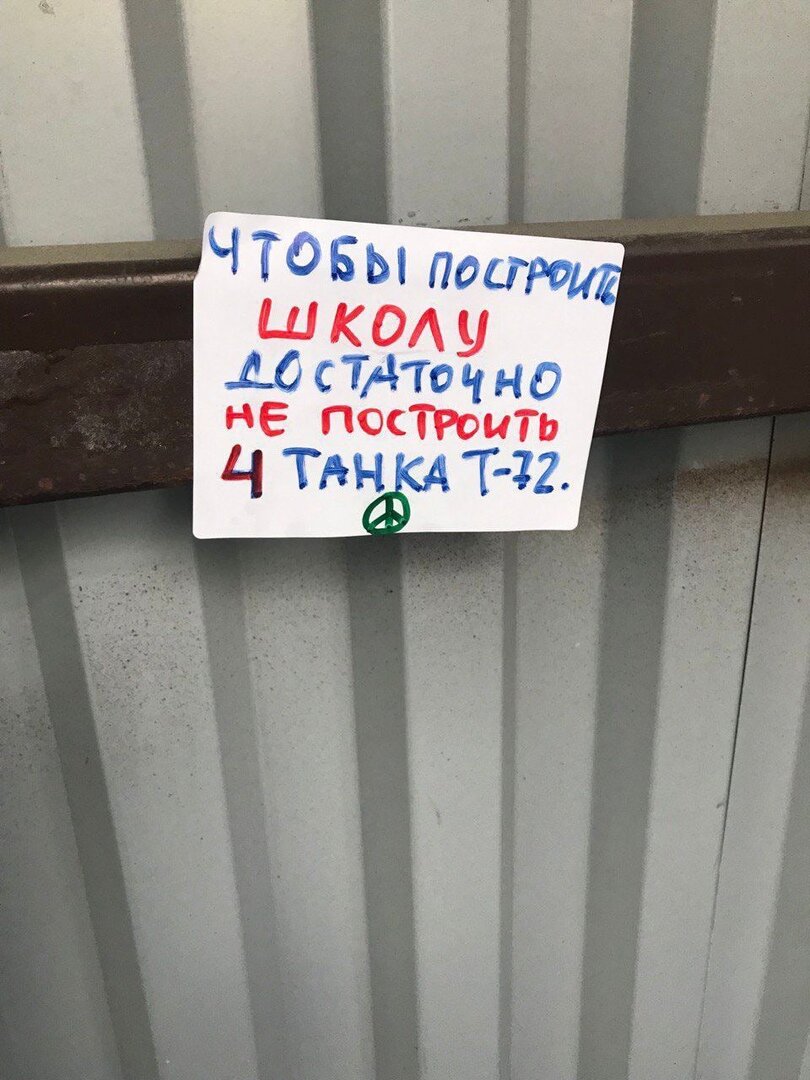 ЧТОБЫ ПОСТРОИТЬ
ШКОЛУ
ДОСТАТОЧНО
НЕ ПОСТРОИТЬ
4 ТАНКА Т-72.